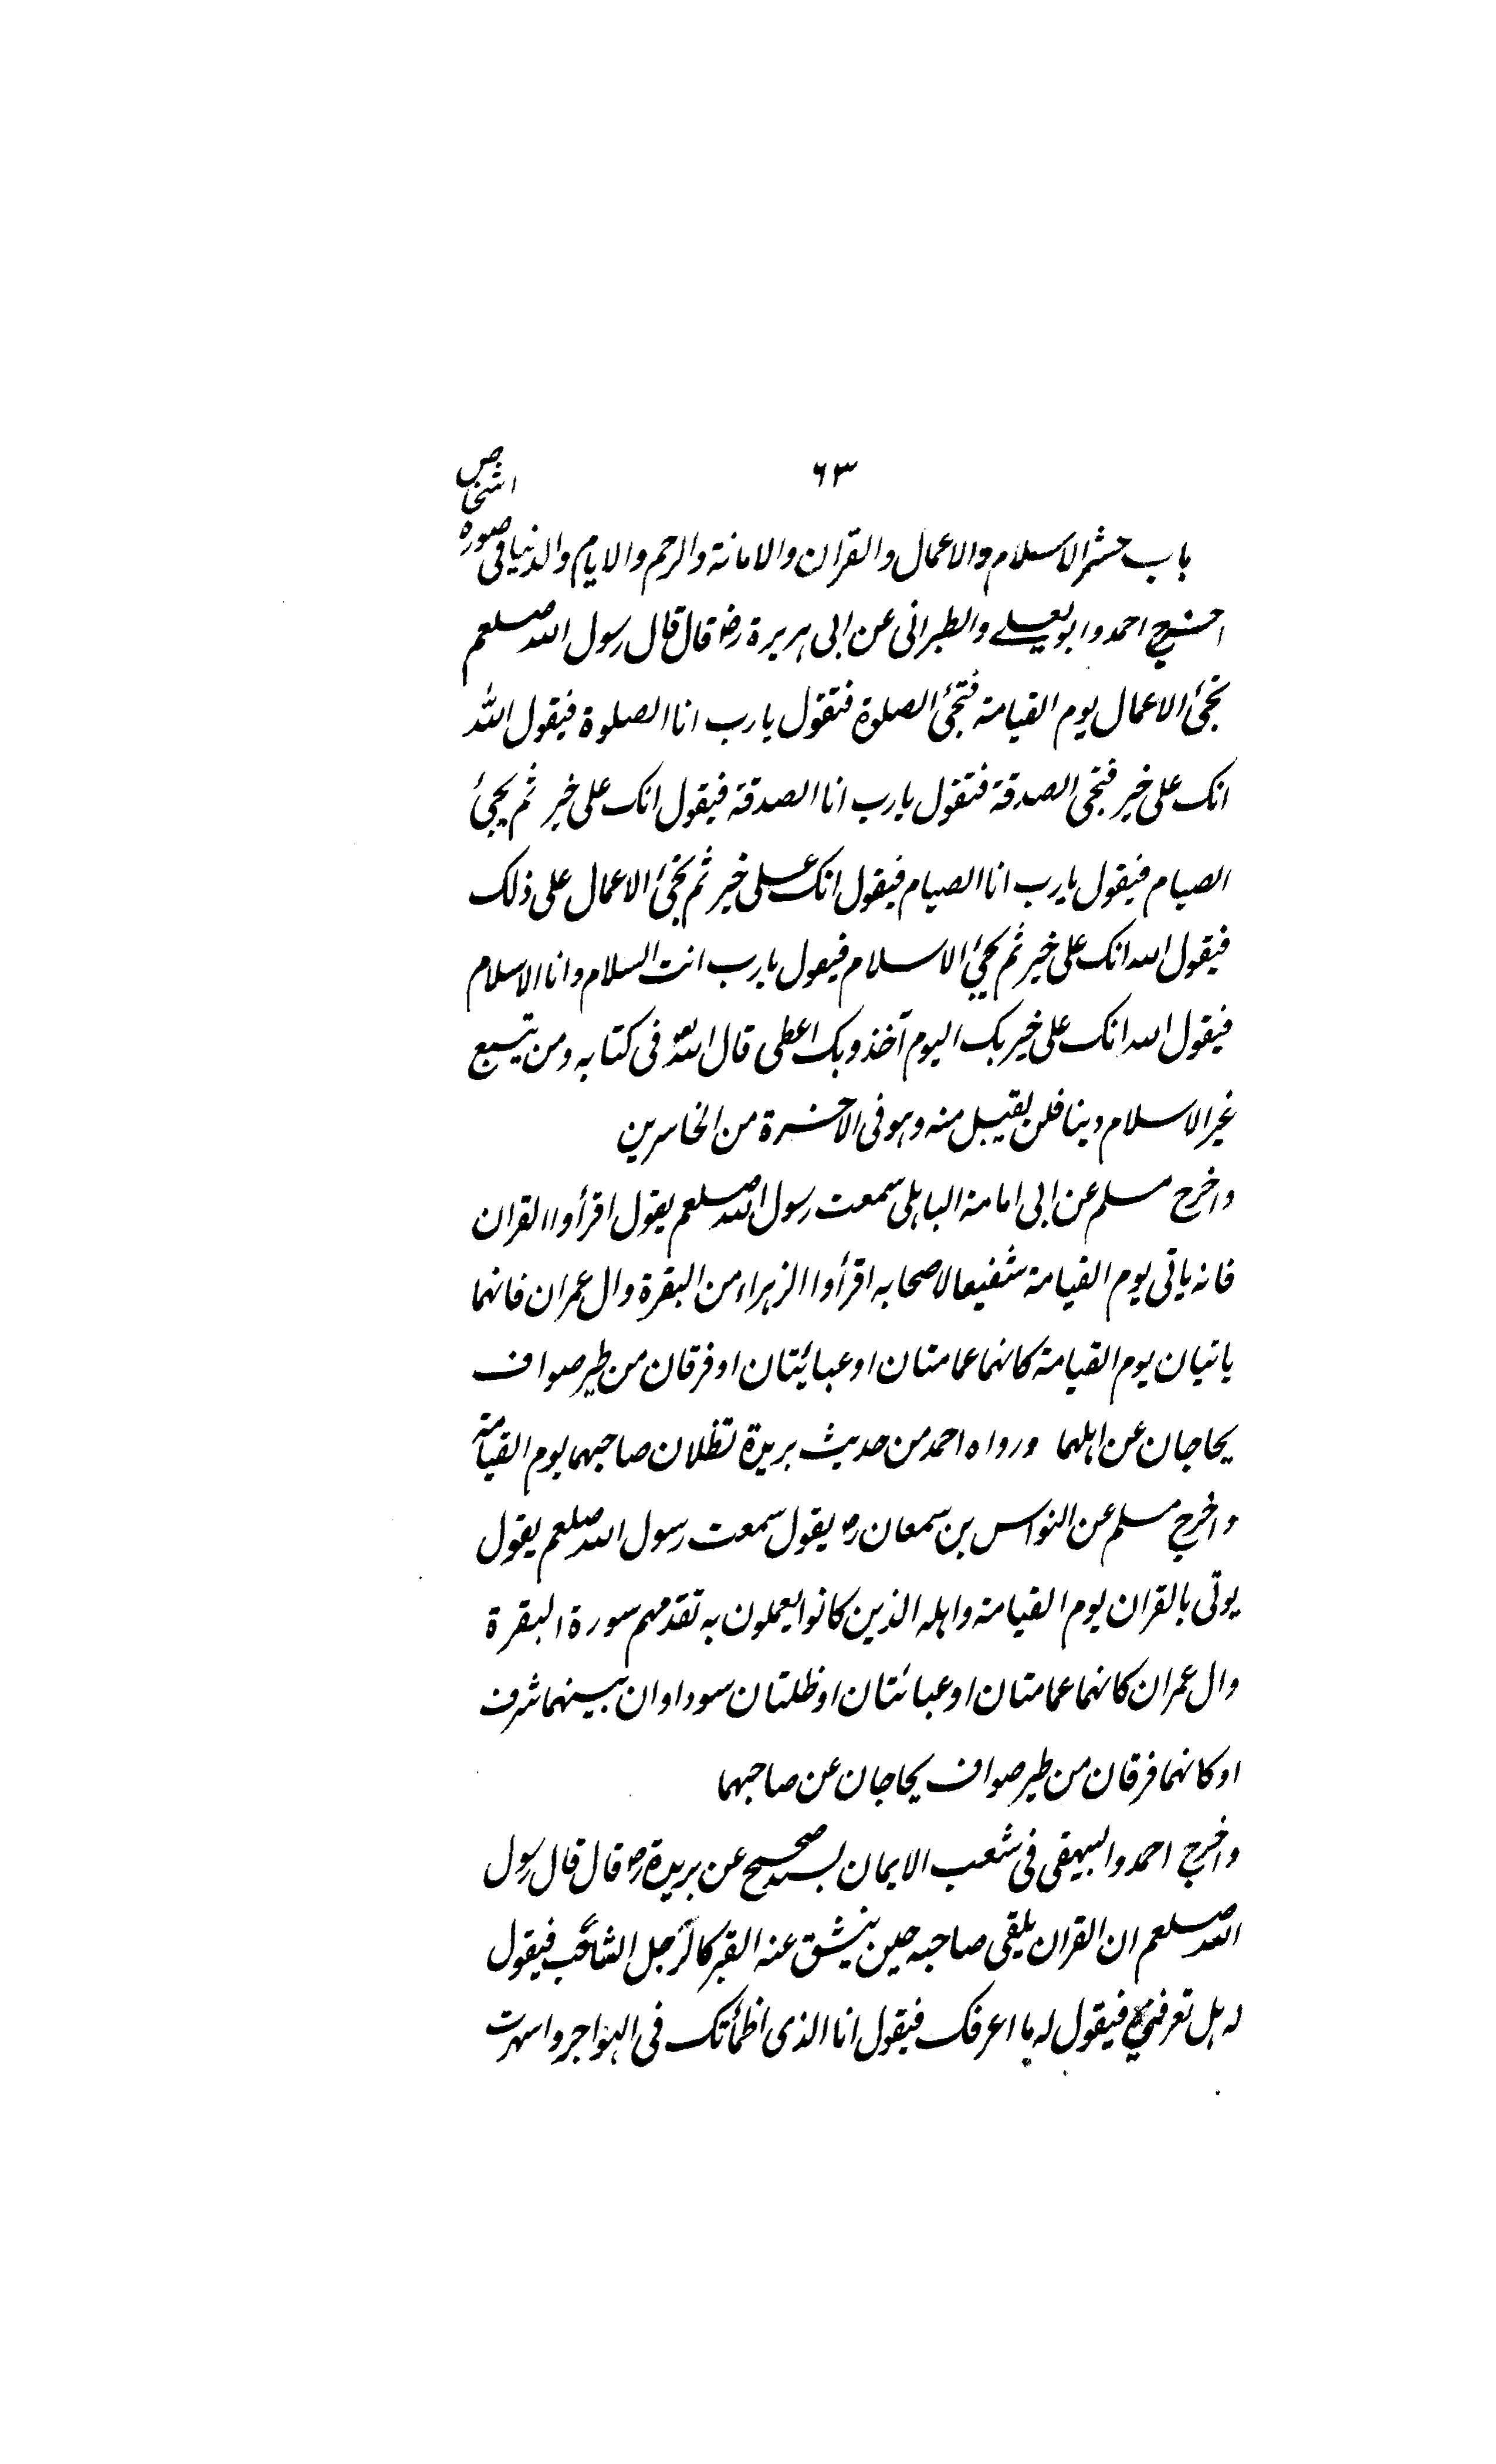 ۶۳
باب حشر الاسلام والاعمال والقران والامانة والرحم والايام والدنيا فى صورة اشخاص
اخرج احمد وابو يعلے والطبرانى عن ابى ہريرة رضؓ قال قال رسول اللہ صلعم
تجئ الاعمال يوم القيامة فتجئ الصلوة فتقول يا رب انا الصلوة فيقول اللہ
انک على خير فتجى الصدقة فتقول يا رب انا الصدقة فيقول انک على خير ثم يجئ
الصيام فيقول يا رب انا الصيام فيقول انک على خير ثم تجئ الاعمال على ذلک
فيقول اللہ انک على خير ثم يجئ الاسلام فيقول يا رب انت السلام وانا الاسلام
فيقول اللہ انک على خير بک اليوم آخذ وبک اعطى قال اللہ تعؔ فى کتابه ومن يتبع
غير الاسلام دينا فلن يقبل منه وہو فى الآخرة من الخاسرين
واخرج مسلم عن ابى امامة الباہلى سمعت رسول اللہ صلعم يقول اقرأوا القران
فانه ياتى يوم القيامة شفيعا لاصحابه اقرأوا الزہراء من البقرة وال عمران فانہما
ياتيان يوم القيامة کانہما عمامتان او عبائيتان او فرقان من طير صواف
يحاجان عن اہلہما ورواه احمد من حديث بريدة تظلان صاحبہما يوم القيامة
واخرج مسلم عن النواس بن سمعان رض يقول سمعت رسول اللہ صلعم يقول
يوتى بالقران يوم القيامة واہله الذين کانوا يعملون به تقدمہم سورة البقرة
وال عمران کانہما عمامتان او عبائتان او ظلتان سوداوان بينہما شرف
او کانہما فرقان من طير صواف يحاجان عن صاحبہما
واخرج احمد والبيہقى فى شعب الايمان بسند صحيح عن بريدة رض قال قال رسول
اللہ صلعم ان القران يلقى صاحبه حين ينشق عنه القبر کالرجل الشاحب فيقول
له ہل تعرفنى فيقول له ما اعرفک فيقول انا الذى اظمأتک فى الہواجر واسہرت